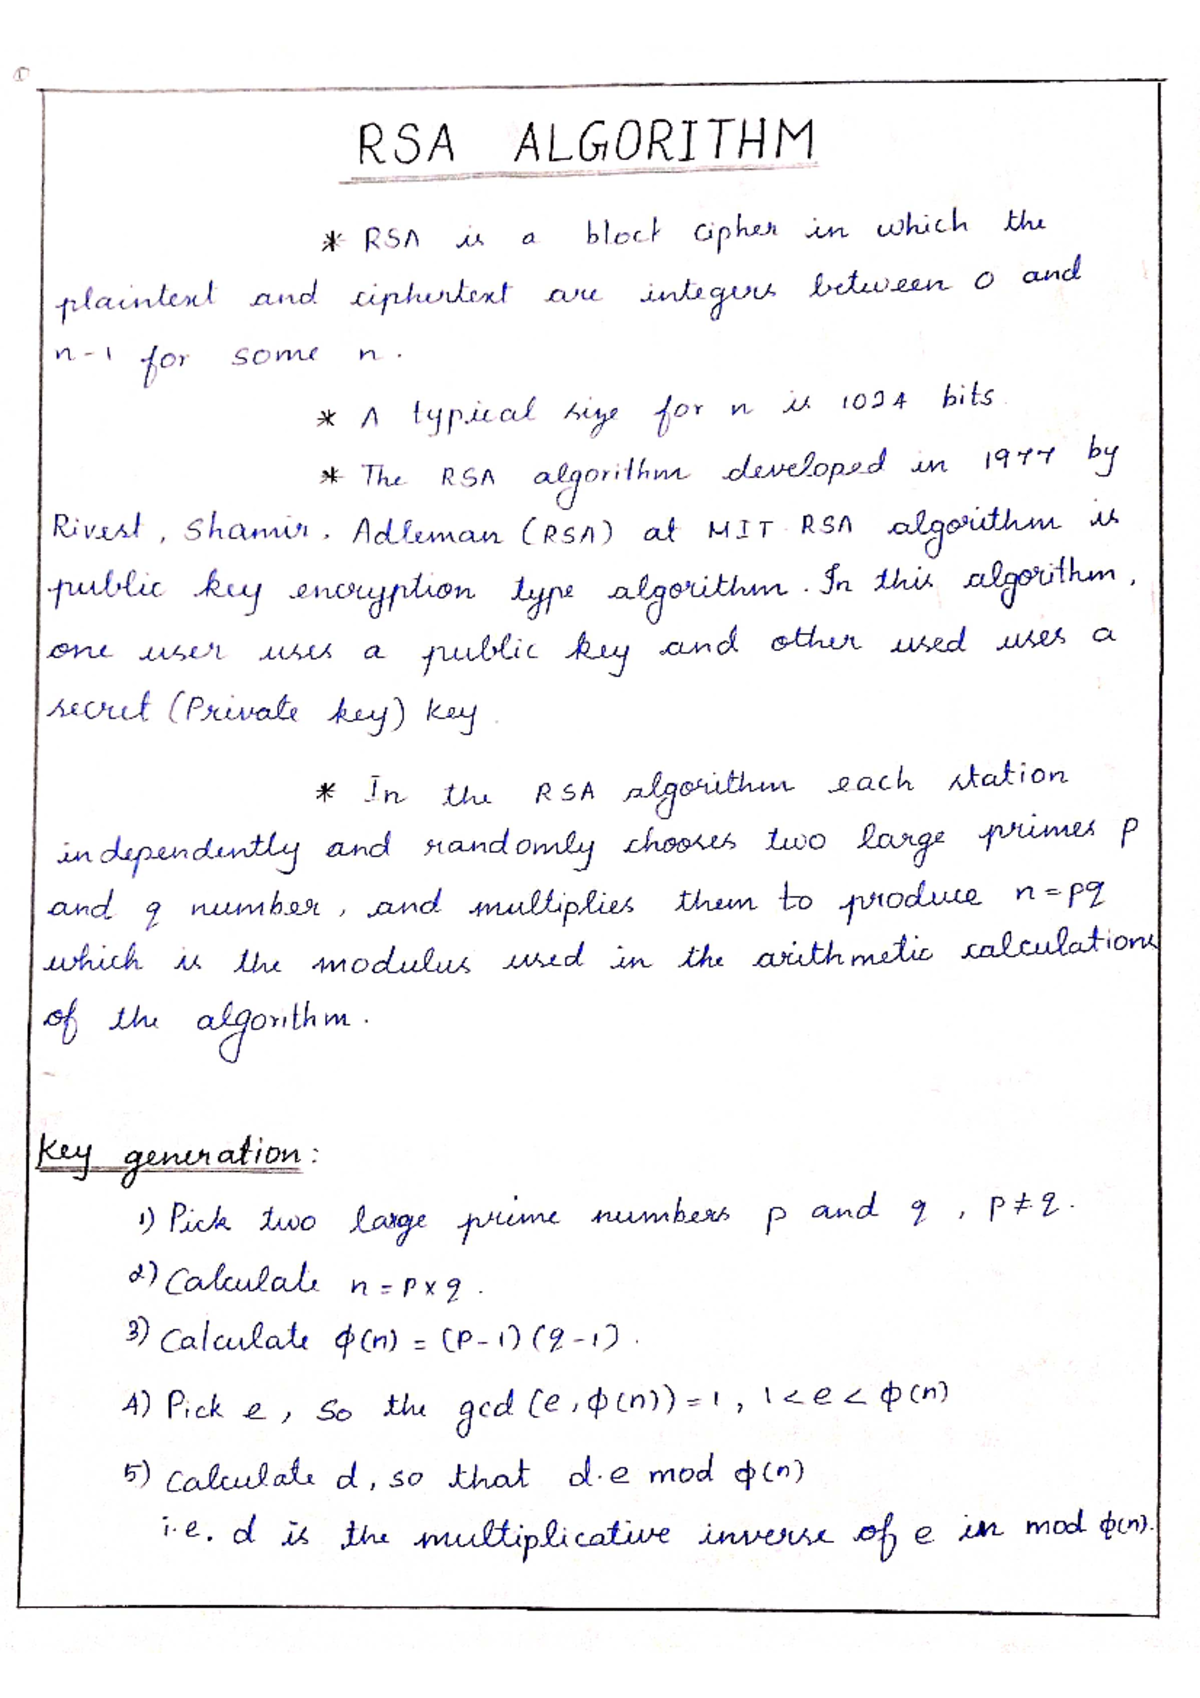 ①
RSA ALGORITHM
* RSA is a block cipher in which the
plaintext and ciphertext are integers between 0 and
n-1 for some n.
* A typical size for n is 1024 bits.
* The RSA algorithm developed in 1977 by
Rivest, Shamir, Adleman (RSA) at MIT. RSA algorithm is
public key encryption type algorithm. In this algorithm,
one user uses a public key and other used uses a
secret (Private key) key.
* In the RSA algorithm each station
independently and randomly chooses two large primes p
and q number, and multiplies them to produce n=pq
which is the modulus used in the arithmetic calculations
of the algorithm.
Key generation:
1) Pick two large prime numbers p and q, p≠q.
2) Calculate n = p×q.
3) Calculate ϕ(n) = (p-1)(q-1).
4) Pick e, so the gcd(e,ϕ(n))=1, 1<e<ϕ(n)
5) Calculate d, so that d.e mod ϕ(n)
i.e. d is the multiplicative inverse of e in mod ϕ(n).